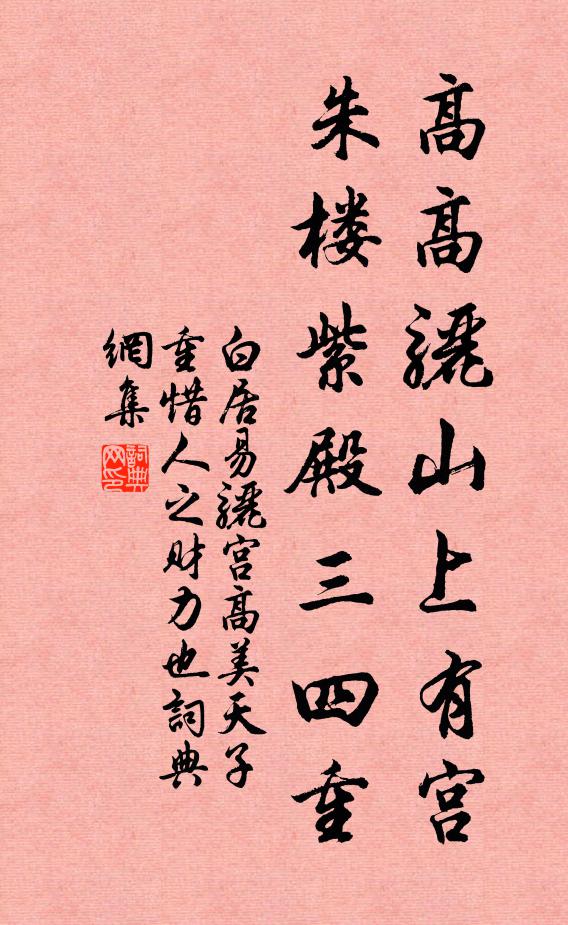 高高骊山上有宫
朱楼紫殿三四重
白居易骊宫高美天子
重惜人之财力也詞典
網集
詞典
网印